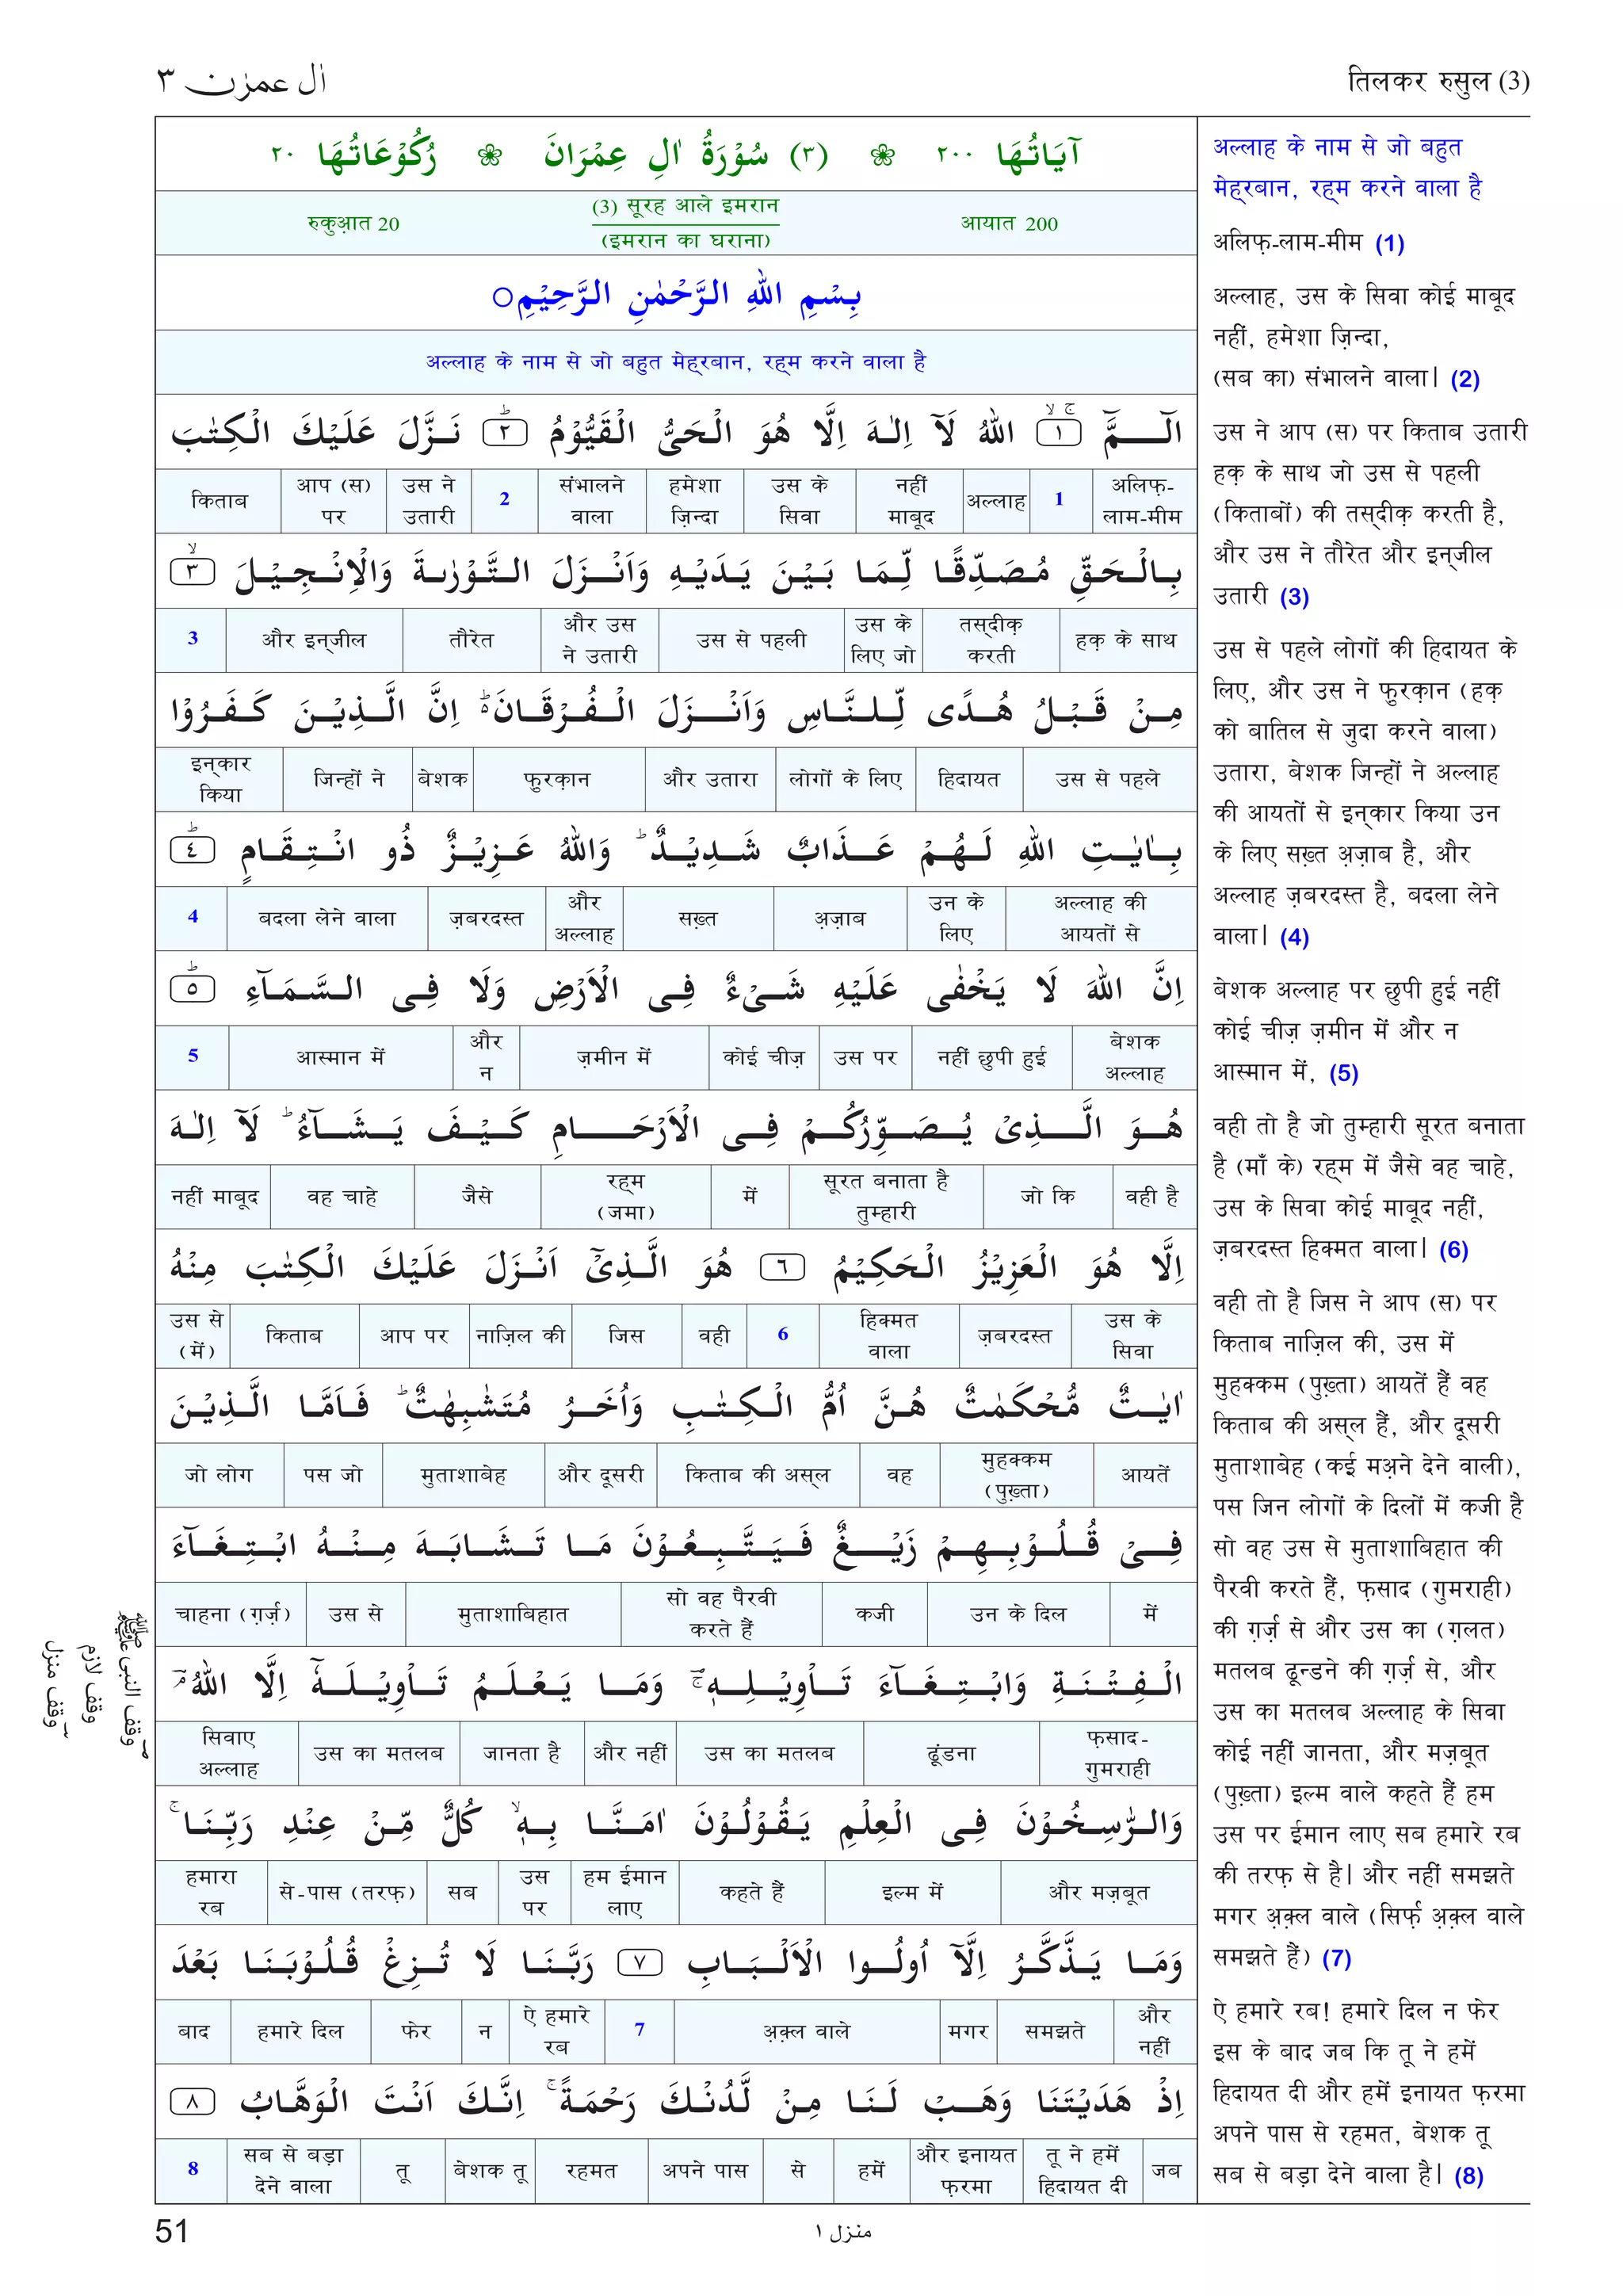 اٰل عمرٰن ٣
तिलकर रुसुल (3)
اٰيَاتُهَا ٢٠٠ ❀ (٣) سُوْرَةُ اٰلِ عِمْرَانَ ❀ رُكُوْعَاتُهَا ٢٠
रुकुआ़त 20 (3) सूरह आले इमरान आयात 200
(इमरान का घराना)
بِسْمِ اللهِ الرَّحْمٰنِ الرَّحِيْمِ ○
अल्लाह के नाम से जो बहुत मेह्रबान, रह्म करने वाला है
الٓمَّٓ ١ اللهُ لَآ اِلٰهَ اِلَّا هُوَ الْحَىُّ الْقَيُّوْمُ ٢ نَزَّلَ عَلَيْكَ الْكِتٰبَ
किताब | आप (स) पर | उस ने उतारी | 2 | संभालने वाला | हमेशा ज़िन्दा | उस के सिवा | नहीं माबूद | अल्लाह | 1 | अलिफ़-लाम-मीम
بِالْحَقِّ مُصَدِّقًا لِّمَا بَيْنَ يَدَيْهِ وَاَنْزَلَ التَّوْرٰىةَ وَالْاِنْجِيْلَ ٣
3 | और इन्जील | तौरेत | और उस ने उतारी | उस से पहली | उस के लिए जो | तस्दीक़ करती | हक़ के साथ
مِنْ قَبْلُ هُدًى لِّلنَّاسِ وَاَنْزَلَ الْفُرْقَانَ ۗ اِنَّ الَّذِيْنَ كَفَرُوْا
इन्कार किया | जिन्हों ने | बेशक | फ़ुरक़ान | और उतारा | लोगों के लिए | हिदायत | उस से पहले
بِاٰيٰتِ اللهِ لَهُمْ عَذَابٌ شَدِيْدٌ ۗ وَاللهُ عَزِيْزٌ ذُو انْتِقَامٍ ٤
4 | बदला लेने वाला | ज़बरदस्त | और अल्लाह | सख़्त | अ़ज़ाब | उन के लिए | अल्लाह की आयतों से
اِنَّ اللهَ لَا يَخْفٰى عَلَيْهِ شَىْءٌ فِى الْاَرْضِ وَلَا فِى السَّمَآءِ ٥
5 | आस्मान में | और न | ज़मीन में | कोई चीज़ | उस पर | नहीं छुपी हुई | बेशक अल्लाह
هُوَ الَّذِىْ يُصَوِّرُكُمْ فِى الْاَرْحَامِ كَيْفَ يَشَآءُ ۗ لَآ اِلٰهَ
नहीं माबूद | वह चाहे | जैसे | रह्म (जमा) | में | सूरत बनाता है तुम्हारी | जो कि | वही है
اِلَّا هُوَ الْعَزِيْزُ الْحَكِيْمُ ٦ هُوَ الَّذِىْٓ اَنْزَلَ عَلَيْكَ الْكِتٰبَ مِنْهُ
उस से (में) | किताब | आप पर | नाज़िल की | जिस | वही | 6 | हिक्मत वाला | ज़बरदस्त | उस के सिवा
اٰيٰتٌ مُّحْكَمٰتٌ هُنَّ اُمُّ الْكِتٰبِ وَاُخَرُ مُتَشٰبِهٰتٌ ۗ فَاَمَّا الَّذِيْنَ
जो लोग | पस जो | मुताशाबेह | और दूसरी | किताब की अस्ल | वह | मुहक्कम (पुख़्ता) | आयतें
فِىْ قُلُوْبِهِمْ زَيْغٌ فَيَتَّبِعُوْنَ مَا تَشَابَهَ مِنْهُ ابْتِغَآءَ
चाहना (ग़र्ज़) | उस से | मुताशाबिहात | सो वह पैरवी करते हैं | कजी | उन के दिल | में
الْفِتْنَةِ وَابْتِغَآءَ تَاْوِيْلِهٖ ۚ وَمَا يَعْلَمُ تَاْوِيْلَهٗٓ اِلَّا اللهُ ۘ
सिवाए अल्लाह | उस का मतलब | जानता है | और नहीं | उस का मतलब | ढूंडना | फ़साद-गुमराही
وَالرّٰسِخُوْنَ فِى الْعِلْمِ يَقُوْلُوْنَ اٰمَنَّا بِهٖ ۙ كُلٌّ مِّنْ عِنْدِ رَبِّنَا ۚ
हमारा रब | से-पास (तरफ़) | सब | उस पर | हम ईमान लाए | कहते हैं | इल्म में | और मज़बूत
وَمَا يَذَّكَّرُ اِلَّآ اُولُوا الْاَلْبَابِ ٧ رَبَّنَا لَا تُزِغْ قُلُوْبَنَا بَعْدَ
बाद | हमारे दिल | फेर | न | ऐ हमारे रब | 7 | अ़क़्ल वाले | मगर | समझते | और नहीं
اِذْ هَدَيْتَنَا وَهَبْ لَنَا مِنْ لَّدُنْكَ رَحْمَةً ۚ اِنَّكَ اَنْتَ الْوَهَّابُ ٨
8 | सब से बड़ा देने वाला | तू | बेशक तू | रहमत | अपने पास | से | हमें | और इनायत फ़रमा | तू ने हमें हिदायत दी | जब
अल्लाह के नाम से जो बहुत
मेह्रबान, रह्म करने वाला है
अलिफ़-लाम-मीम (1)
अल्लाह, उस के सिवा कोई माबूद
नहीं, हमेशा ज़िन्दा,
(सब का) संभालने वाला। (2)
उस ने आप (स) पर किताब उतारी
हक़ के साथ जो उस से पहली
(किताबों) की तस्दीक़ करती है,
और उस ने तौरेत और इन्जील
उतारी (3)
उस से पहले लोगों की हिदायत के
लिए, और उस ने फ़ुरक़ान (हक़
को बातिल से जुदा करने वाला)
उतारा, बेशक जिन्हों ने अल्लाह
की आयतों से इन्कार किया उन
के लिए सख़्त अ़ज़ाब है, और
अल्लाह ज़बरदस्त है, बदला लेने
वाला। (4)
बेशक अल्लाह पर छुपी हुई नहीं
कोई चीज़ ज़मीन में और न
आस्मान में, (5)
वही तो है जो तुम्हारी सूरत बनाता
है (माँ के) रह्म में जैसे वह चाहे,
उस के सिवा कोई माबूद नहीं,
ज़बरदस्त हिक्मत वाला। (6)
वही तो है जिस ने आप (स) पर
किताब नाज़िल की, उस में
मुहक्कम (पुख़्ता) आयतें हैं वह
किताब की अस्ल हैं, और दूसरी
मुताशाबेह (कई मअ़ने देने वाली),
पस जिन लोगों के दिलों में कजी है
सो वह उस से मुताशाबिहात की
पैरवी करते हैं, फ़साद (गुमराही)
की ग़र्ज़ से और उस का (ग़लत)
मतलब ढून्डने की ग़र्ज़ से, और
उस का मतलब अल्लाह के सिवा
कोई नहीं जानता, और मज़बूत
(पुख़्ता) इल्म वाले कहते हैं हम
उस पर ईमान लाए सब हमारे रब
की तरफ़ से है। और नहीं समझते
मगर अ़क़्ल वाले (सिर्फ़ अ़क़्ल वाले
समझते हैं) (7)
ऐ हमारे रब! हमारे दिल न फेर
इस के बाद जब कि तू ने हमें
हिदायत दी और हमें इनायत फ़रमा
अपने पास से रहमत, बेशक तू
सब से बड़ा देने वाला है। (8)
وقف النبى ﷺ
وقف لازم
وقف منزل
51
منزل ١